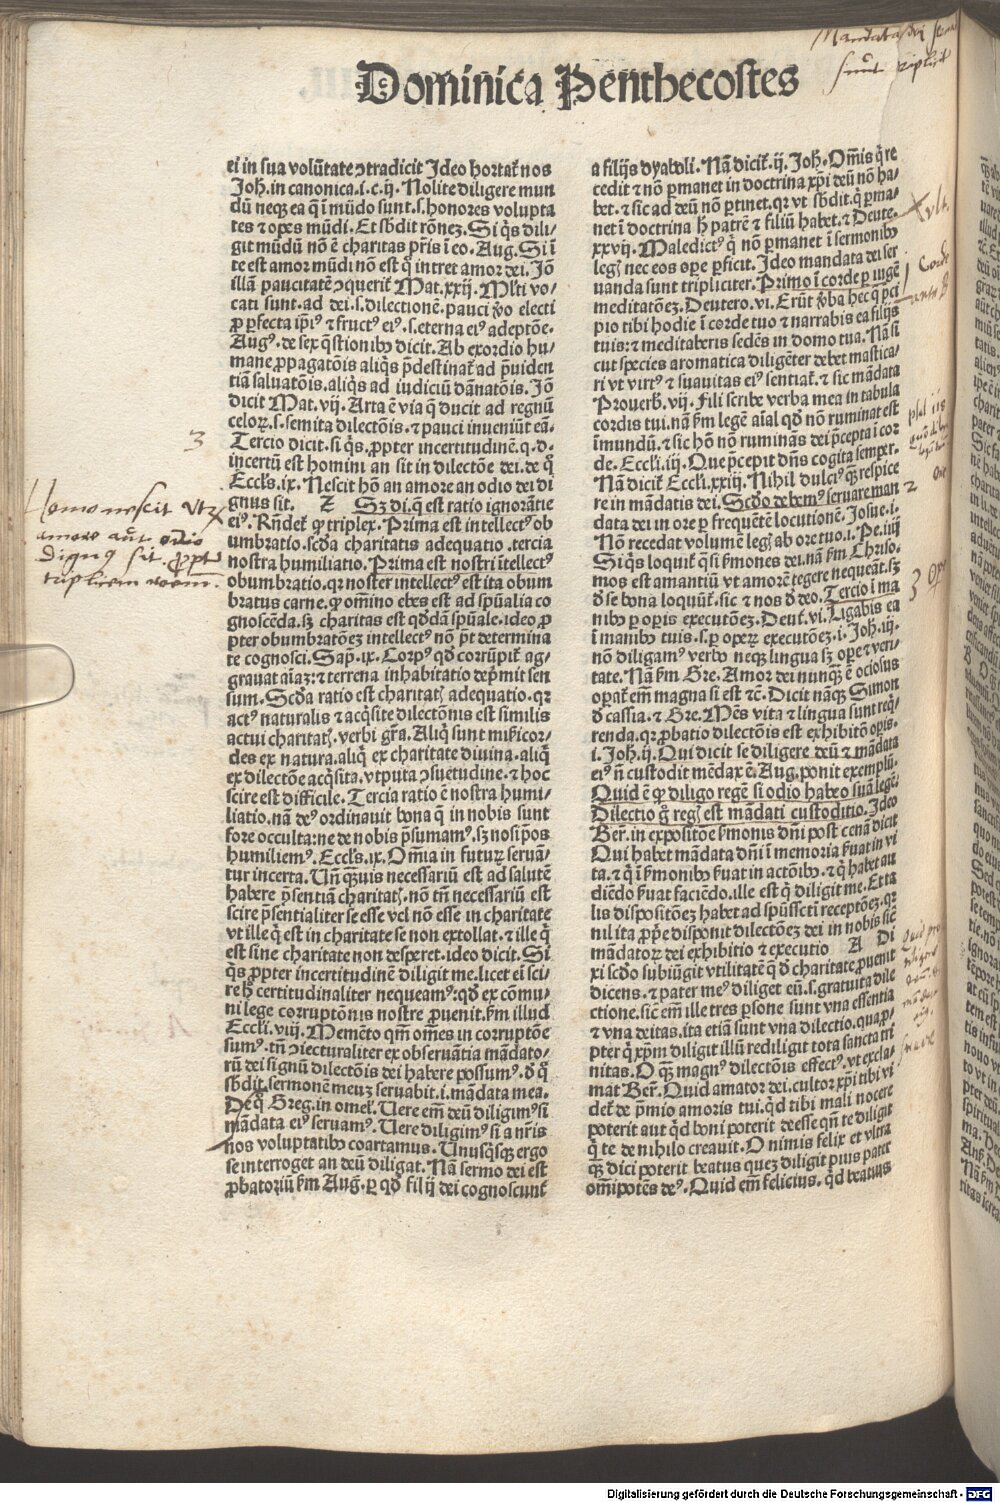 Dominica Penthecostes
Mandata dei
sunt
ei in sua volūtate ↄtradicit Ideo hortat᷑ nos
Joh̄. in canonica. i. c. ij. Nolite diligere mun
dū neqꝫ ea q̄ ī mūdo sunt. s. honores volupta
tes ⁊ opes mūdi. Et sb̄dit rōneꝫ. Si q̇s dili/
git mūdū nō ē charitas pr̄is ī eo. Aug. Si ī
te est amor mūdi nō est q̊ intret amor dei. Iō
illā paucitatē ↄquerit᷑ Mat. xxij. Ml̓ti vo/
cati sunt. ad dei. s. dilectionē. pauci v̊o electi
ꝓ ꝑfecta ip̄iꝰ ⁊ fructꝰ eiꝰ. s. eterna eiꝰ adeptōe.
Augꝰ. de sex q̄stionibꝰ dicit. Ab exordio hu/
mane ꝓpagatōis aliq̄s p̄destinat᷑ ad ꝓuiden
tiā saluatōis. aliq̄s ad iudiciū dānatōis. Iō
dicit Mat. vij. Arta ē via q̄ ducit ad regnū
celoꝝ. s. semita dilectōis. ⁊ pauci inueniūt eā.
Tercio dicit. si q̇s. ꝓpter incertitudinē. q. d.
incertū est homini an sit in dilectōe dei. de q̊
Eccl̓s. ix. Nescit hō an amore an odio dei di
gnus sit. Z Sꝫ di. q̄ est ratio ignorātie
eiꝰ. Rn̄det᷑ ꝙ triplex. Prima est intellectꝰ ob
umbratio. scd̓a charitatis adequatio. tercia
nostra humiliatio. Prima est nostri ītellectꝰ
obumbratio. qꝛ noster intellectꝰ est ita obum
bratus carne. ꝙ om̄ino ebes est ad sp̄ualia co
gnoscēda. sꝫ charitas est qd̓dā sp̄uale. ideo ꝓ
pter obumbratōeꝫ intellectꝰ nō p̄t determina
te cognosci. Sap̄. ix. Corpꝰ qd̓ corrūpit᷑ ag/
grauat aīaꝫ: ⁊ terrena inhabitatio dep̄mit sen
sum. Scd̓a ratio est charitatꝭ adequatio. qꝛ
actꝰ naturalis ⁊ acq̇site dilectōnis est similis
actui charitatꝭ. verbi gr̄a. Aliq̇ sunt mis̓icor/
des ex natura. aliq̇ ex charitate diuina. aliq̇
ex dilectōe acq̇sita. vtputa ↄsuetudine. ⁊ hoc
scire est difficile. Tercia ratio ē nostra humi/
liatio. nā deꝰ ordinauit bona q̄ in nobis sunt
fore occulta: ne de nobis p̄sumamꝰ. sꝫ nosip̄os
humiliemꝰ. Eccl̓s. ix. Om̄ia in futuꝝ seruā/
tur incerta. Un̄ qꝫuis necessariū est ad salutē
habere p̄sentiā charitatꝭ. nō tn̄ necessariū est
scire p̄sentialiter se esse vel nō esse in charitate
vt ille q̇ est in charitate se non extollat. ⁊ ille q̇
est sine charitate non desperet. ideo dicit. Si
q̇s ꝓpter incertitudinē diligit me. licet ei sci/
re h̓ certitudinaliter nequeamꝰ: qd̓ ex cōmu/
ni lege corruptōnis nostre ꝓuenit. ẜm illud
Eccl̓i. viij. Memēto qm̄ om̄es in corruptōe
sumꝰ. tn̄ ↄiecturaliter ex obseruātia mādato/
rū dei signū dilectōis dei habere possumꝰ. d̓ q̊
sb̄dit. sermonē meuꝫ seruabit. i. mādata mea.
De q̊ Greg. in omel̓. Uere em̄ deū diligimꝰ si
mādata eiꝰ seruamꝰ. Uere diligimꝰ si a nr̄is
nos voluptatibꝰ coartamus. Unusq̇sqꝫ ergo
se interroget an deū diligat. Nā sermo dei est
ꝓbatoriū ẜm Aug. ꝑ qd̓ filij dei cognoscunt᷑
a filijs dyaboli. Nā dicit᷑. ij. Joh̄. Om̄is q̇ re
cedit ⁊ nō ꝑmanet in doctrina xp̄i deū nō ha/
bet. ⁊ sic ad deū nō ꝑtinet. qꝛ vt sb̄dit. q̇ ꝑma/
net ī doctrina h̓ patrē ⁊ filiū habet. ⁊ Deute.
xxvij. Maledictꝰ q̇ nō ꝑmanet ī sermonibꝰ
legꝭ nec eos oꝑe ꝑficit. Ideo mandata dei ser
uanda sunt tripliciter. Primo ī corde ꝑ iugē
meditatōeꝫ. Deutero. vi. Erūt v̓ba hec q̄ p̄ci
pio tibi hodie ī corde tuo ⁊ narrabis ea filijs
tuis: ⁊ meditaberis sedēs in domo tua. Nā si
cut species aromatica diligēter debet mastica/
ri vt virtꝰ ⁊ suauitas eiꝰ sentiat᷑. ⁊ sic mādata
Prouerb̓. vij. Fili scribe verba mea in tabula
cordis tui. nā ẜm legē aīal qd̓ nō ruminat est
īmundū. ⁊ sic hō nō ruminās dei p̄cepta ī cor
de. Eccl̓i. iij. Que p̄cepit dn̄s cogita semper.
Nā dicit᷑ Eccl̓i. xxiij. Nihil dulciꝰ qꝫ respice
re in mādatis dei. Scd̓o debemꝰ seruare man
data dei in ore ꝑ frequētē locutionē. Josue. i.
Nō recedat volumē legꝭ ab ore tuo. i. Pe. iiij
Si q̇s loquit᷑ q̄si ẜmones dei. nā ẜm Chriso-
mos est amantiū vt amorē tegere nequeāt. sꝫ
d̓ se bona loquūt᷑. sic ⁊ nos d̓ deo. Tercio ī ma
nibꝰ ꝑ oꝑis executōeꝫ. Deut᷑. vi. Ligabis ea
ī manibꝰ tuis. s. ꝑ oꝑeꝝ executōeꝫ. i. Joh̄. iij.
nō diligamꝰ verbo neqꝫ lingua sꝫ oꝑe ⁊ veri/
tate. Nā ẜm Gre. Amor dei nunqꝫ ē ociosus
oꝑat᷑ em̄ magna si est ⁊c̄. Dicit nāqꝫ Simon
d̓ cassia. ⁊ Gre. Mēs vita ⁊ lingua sunt req̇/
renda. qꝛ ꝓbatio dilectōis est exhibitō oꝑis.
i. Joh̄. ij. Qui dicit se diligere deū ⁊ mādata
eiꝰ n̄ custodit mēdax ē. Aug. ponit exemplū.
Quid ē ꝙ diligo regē si odio habeo suā legē.
Dilectio g̊ regꝭ est mādati custoditio. Ideo
Ber̄. in expositōe ẜmonis dn̄i post cenā dicit
Qui habet mādata dn̄i ī memoria ẜuat in vi
ta. ⁊ q̇ ī ẜmonibꝰ ẜuat in actōibꝰ. ⁊ q̇ habet au
diēdo ẜuat faciēdo. ille est q̇ diligit me. Et ta
lis dispositōeꝫ habet ad sp̄ūssc̄ti receptōeꝫ. qꝛ
nil ita ꝓp̄e disponit dilectōeꝫ dei in nobis sic̄
mādatoꝝ dei exhibitio ⁊ executio A Di
xi scd̓o subiūgit vtilitatē q̄ d̓ charitate ꝓuenit
dicens. ⁊ pater meꝰ diliget eū. s. gratuita dile
ctione. sic̄ em̄ ille tres ꝑsone sunt vna essentia
⁊ vna deitas. ita etiā sunt vna dilectio. quaꝓ/
pter q̇ xp̄m diligit illū rediligit tota sancta tri
nitas. O qꝫ magnꝰ dilectōis effectꝰ. vt excla/
mat Ber̄. Quid amator dei. cultor xp̄i tibi vi
det᷑ de p̄mio amoris tui. qd̓ tibi mali nocere
poterit aut qd̓ boni poterit deesse qn̄ te diligit
q̇ te de nihilo creauit. O nimis felix et vltra
qꝫ dici poterit beatus queꝫ diligit pius pater
om̄ipotēs deꝰ. Quid em̄ felicius. qd̓ beatius
3
Homo nescit utrum
amore aut odio
dignus sit propter
triplicem rōem.
1 Corde
2 Ore
3 Ope
Digitalisierung gefördert durch die Deutsche Forschungsgemeinschaft - DFG